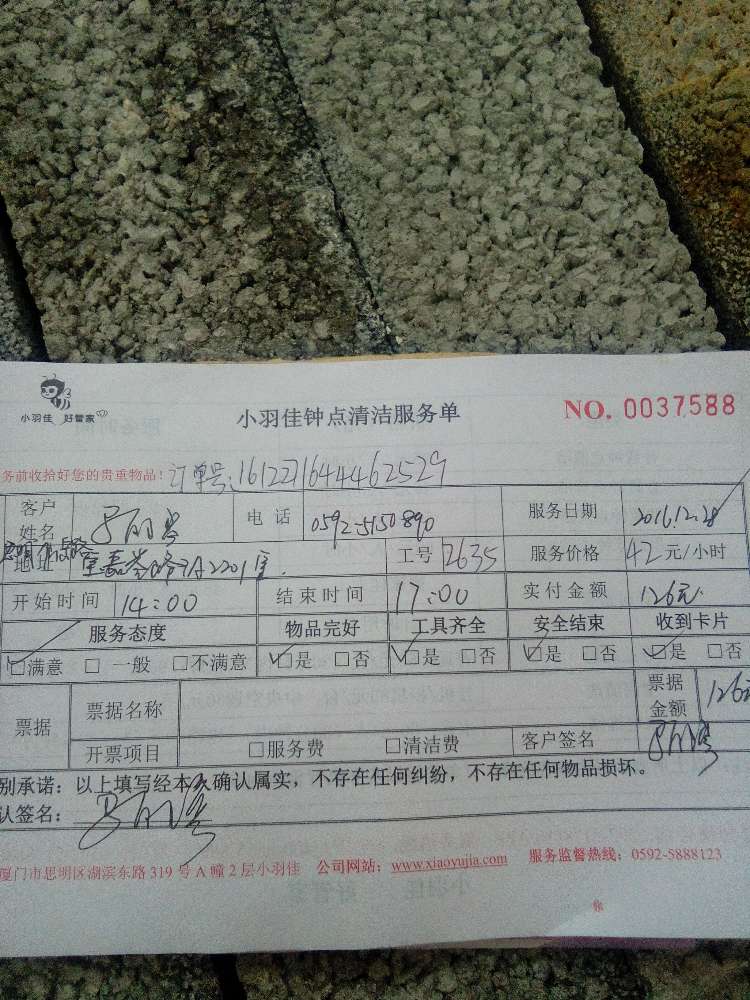 小羽佳 好管家
小羽佳钟点清洁服务单
NO. 0037588
务前收拾好您的贵重物品！订单号：161227164446252​9
客户姓名 电话 0592-5150890 服务日期 2016.12.28
地址 A2201室. 工号 2635 服务价格 42元/小时
开始时间 14:00 结束时间 17:00 实付金额 126元.
服务态度 物品完好 工具齐全 安全结束 收到卡片
☑满意 □ 一般 □不满意 ☑是 □否 ☑是 □否 ☑是 □否 ☑是 □否
票据 票据名称 票据金额 126元
开票项目 □服务费 □清洁费 客户签名
别承诺：以上填写经本人确认属实，不存在任何纠纷，不存在任何物品损坏。
认签名：
厦门市思明区湖滨东路 319 号 A 幢 2 层小羽佳 公司网站：www.xiaoyujia.com 服务监督热线：0592-5888123